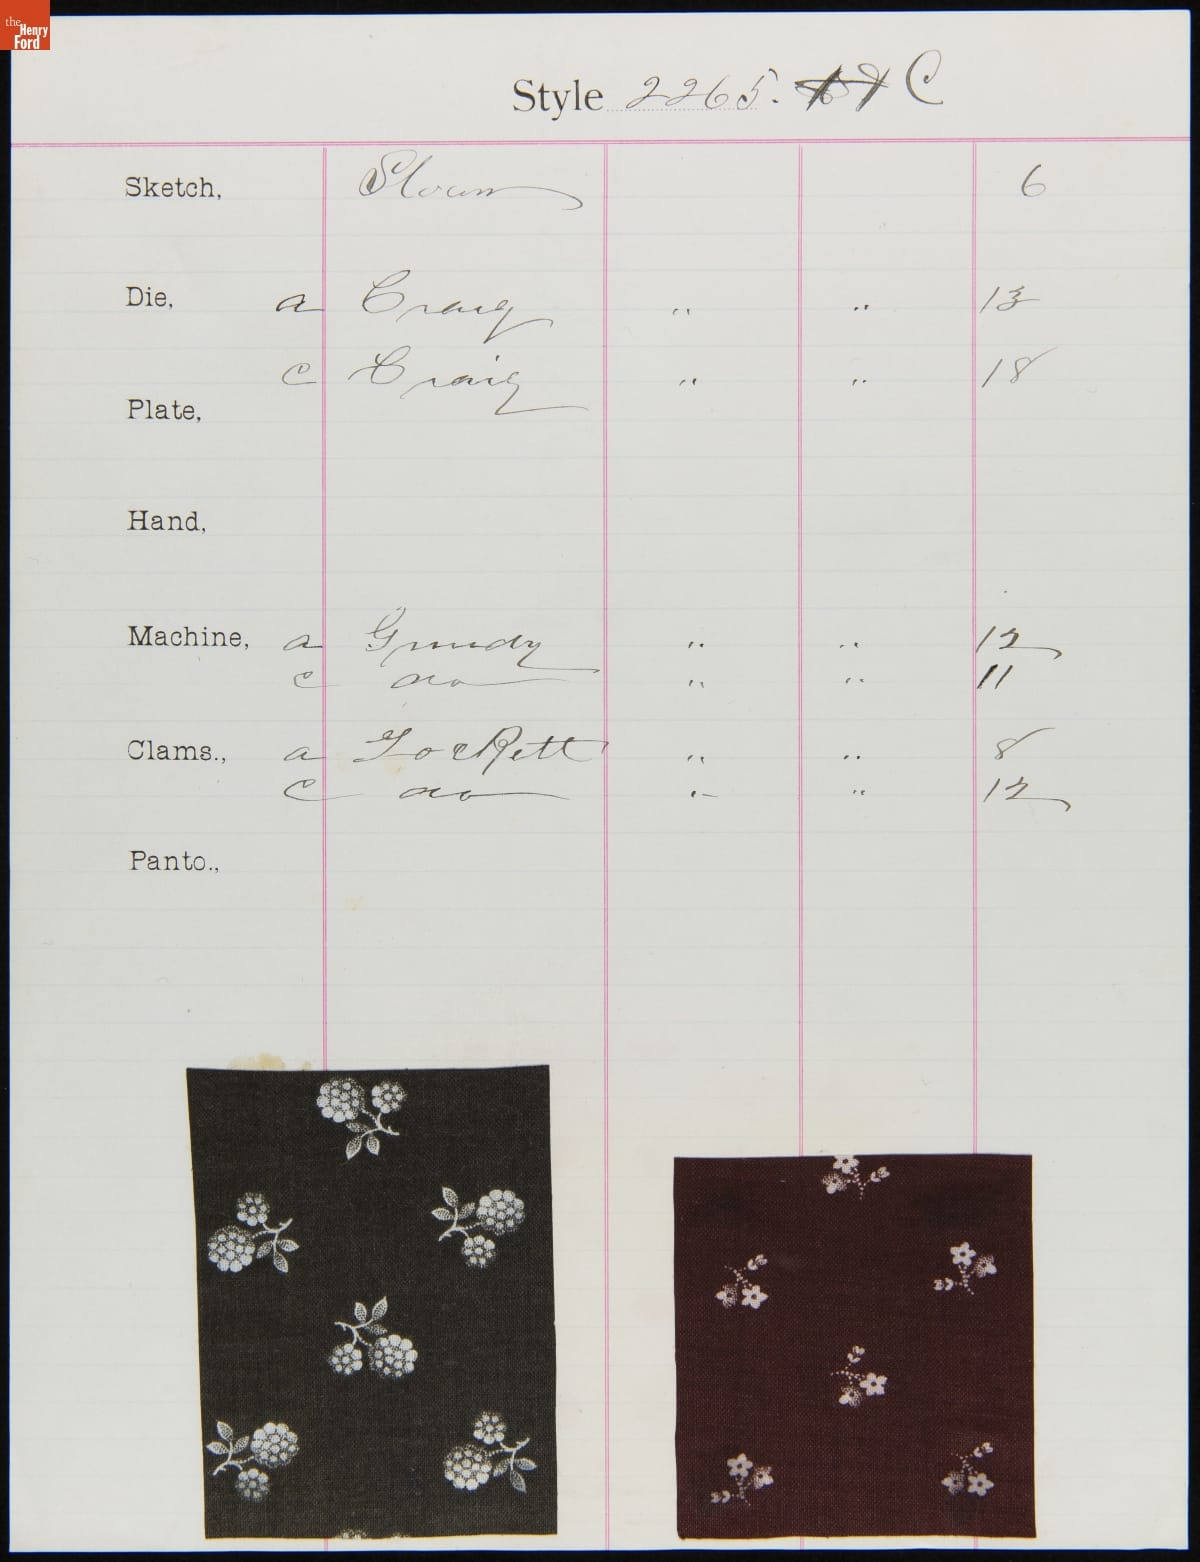 the
Henry
Ford
Style 2265. C
Sketch, Slocum 6
Die, a Craig " " 13
c Craig " " 18
Plate,
Hand,
Machine, a Grundy " " 12
c do " " 11
Clams., a Lockett " " 8
c do " " 12
Panto.,